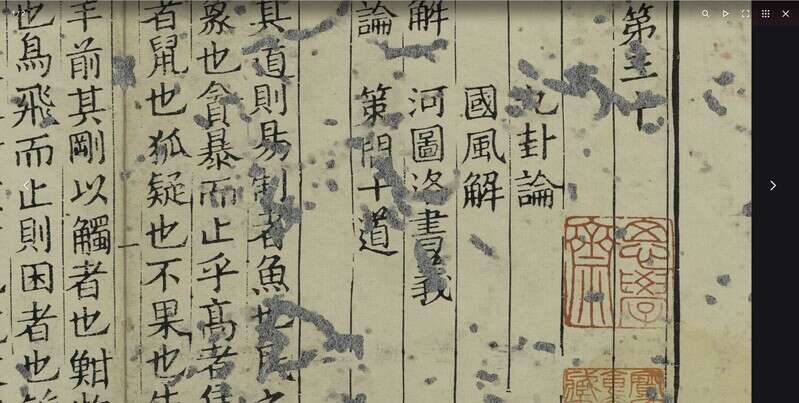 第三十
九卦論
國風解
解 河圖洛書義
論 策問十道
其道則易制者魚也民之
象也貪暴而止乎高者
者鼠也狐疑也不果也
羊前其剛以觸者也
也鳥飛而止則困者也